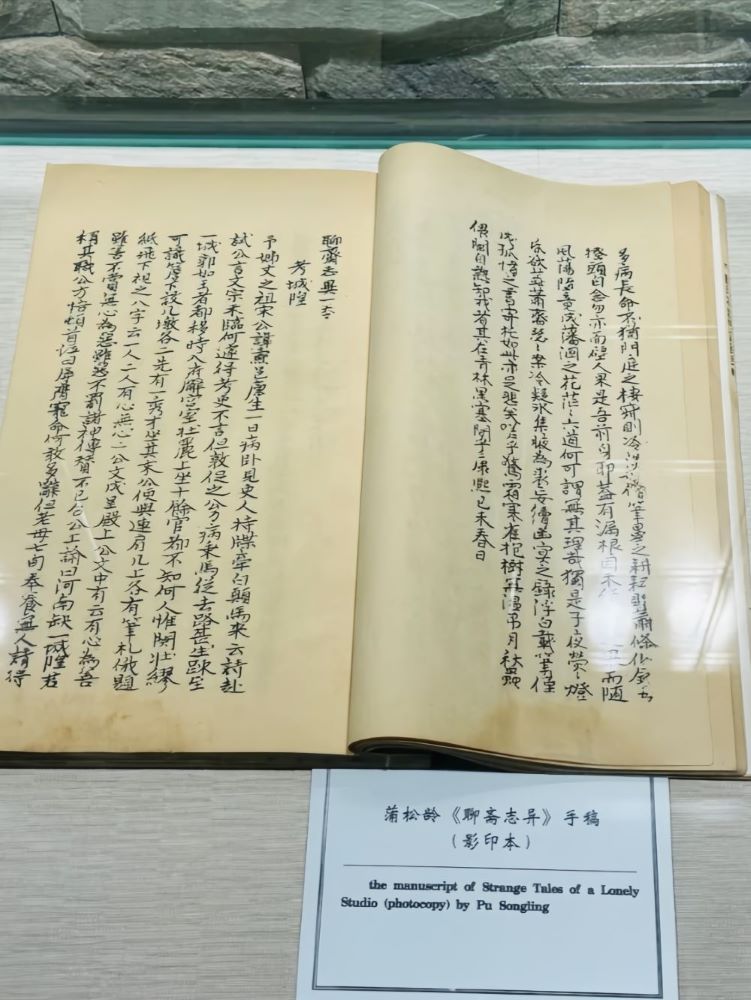 多病長命不猶門庭之棲寂則冷淡如僧筆墨之耕耘則蕭條似
搔頭自念勿亦面壁人果是吾前身耶蓋有漏根因未 而隨
風蕩墮竟成藩溷之花茫茫六道何可謂無其理哉獨是子夜熒熒燈
昏欲蕊蕭齋瑟瑟案冷疑冰集腋為裘妄續幽冥之錄浮白載筆僅
成孤憤之書寄托如此亦足悲矣嗟乎驚霜寒雀抱樹無溫吊月秋蟲
偎闌自熱知我者其在青林黑塞間乎康熙己未春日
聊齋志異一卷
考城隍
予姊丈之祖宋公諱燾邑廩生一日病卧見吏人持牒牽白顛馬來云請赴
試公言文宗未臨何遽得考吏不言但敦促之公力病乘馬從去路甚生疎至
一城郭如王者都移時入府廨宮室壯麗上坐十餘官都不知何人惟関壯繆
可識簷下設几墩各二先有一秀才坐其末公便與連肩几上各有筆札俄題
紙飛下視之八字云一人二人有心無心二公文成呈殿上公文中有云有心為善
雖善不賞無心為惡雖惡不罰諸神傳贊不已召公上諭曰河南缺一城隍君
稱其職公方悟頓首泣曰辱膺寵命何敢多辭但老母七旬奉養無人請得
蒲松龄《聊斋志异》手稿
（影印本）
the manuscript of Strange Tales of a Lonely
Studio (photocopy) by Pu Songling